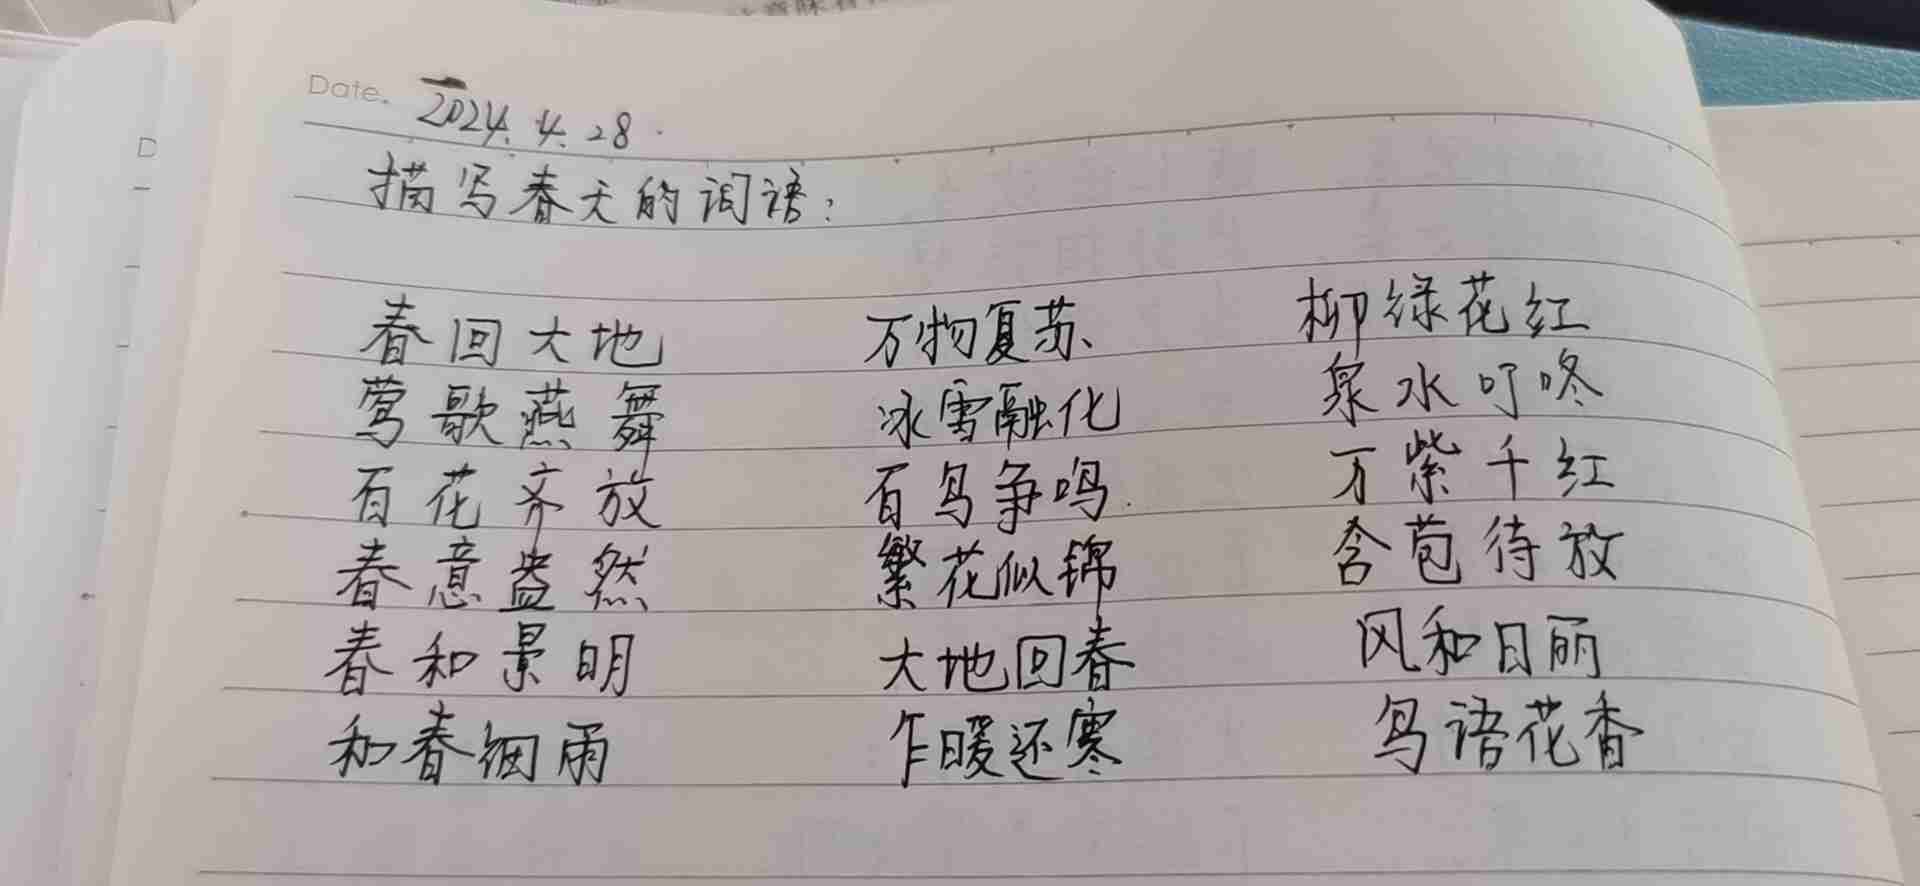 Date. 2024.4.28.
描写春天的词语：
春回大地 万物复苏、 柳绿花红
莺歌燕舞 冰雪融化 泉水叮咚
百花齐放 百鸟争鸣. 万紫千红
春意盎然 繁花似锦 含苞待放
春和景明 大地回春 风和日丽
和春细雨 乍暖还寒 鸟语花香